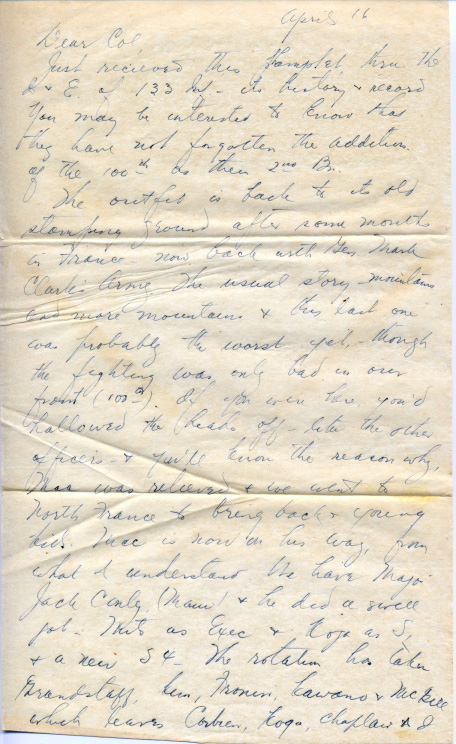 April 16
Dear Col
Just recieved this Pamplet thru the
I & E. of 133 Inf - its history & record
You may be interested to know that
they have not forgotten the addition
of the 100th as their 2nd Bn.
The outfit is back to its old
stamping ground after some months
in France - now back with Gen. Mark
Clark's Army. The usual story - mountains
and more mountains & this last one
was probably the worst yet, - though
the fighting was only bad in our
front (100th). If you were here, you'd
hallowed the heads off - like the other
officers - & you'll know the reason why,
Mac was relieved & we went to
North France to bring back & young
kids. Mac is now on his way, from
what I understand We have Major
Jack Conley (Maui) & he did a swell
job - Mits as Exec & Koga as S,
& a new S4 - The rotation has taken
Grandstaff, Kim, Fronin, Kawano & McKell
which leaves Corbin, Koga, Chaplain & I